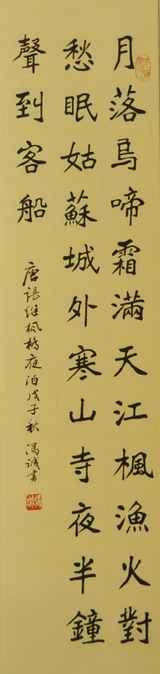 月落烏啼霜滿天江楓漁火對
愁眠姑蘇城外寒山寺夜半鐘
聲到客船
唐張继楓橋夜泊戊子秋馮誠書